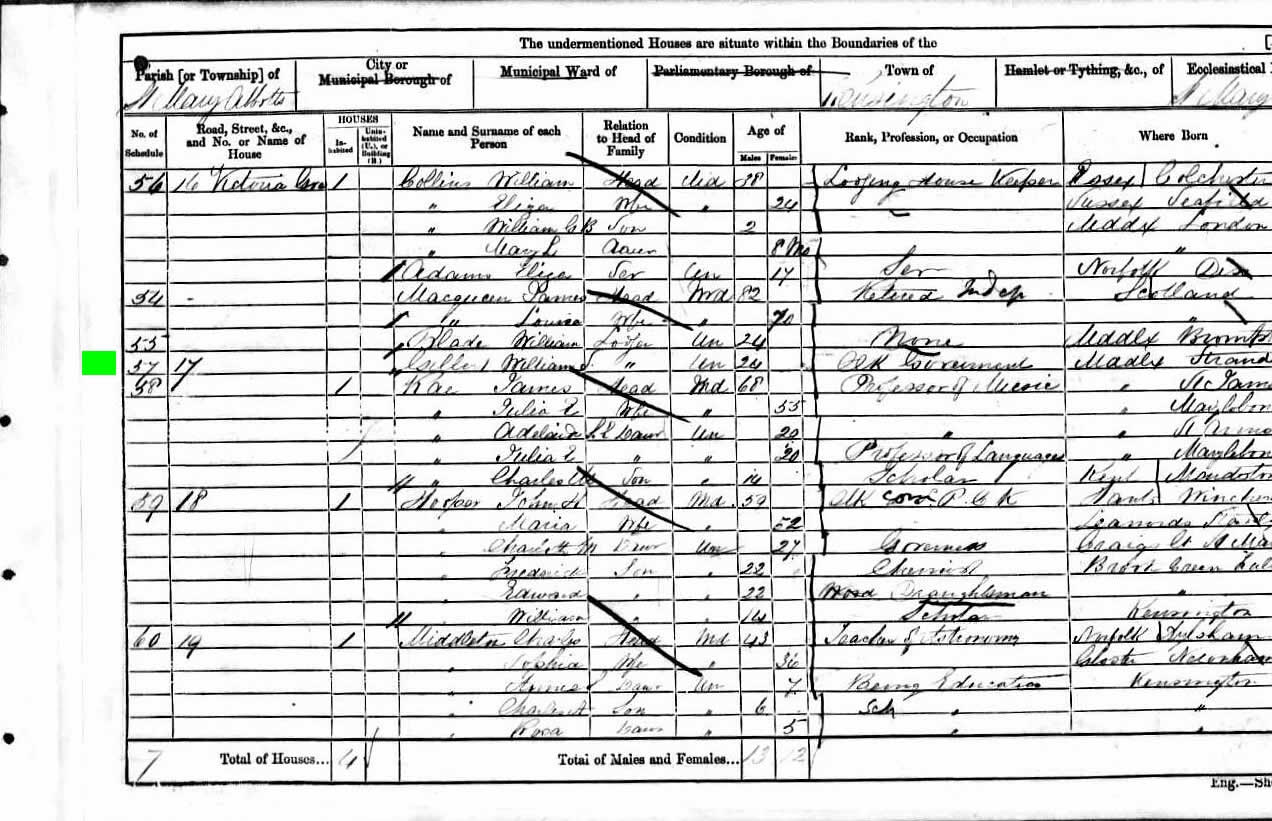 The undermentioned Houses are situate within the Boundaries of the
Parish [or Township] of City or Municipal Borough of Municipal Ward of Parliamentary Borough of Town of Hamlet or Tything, &c., of Ecclesiastical
St Mary Abbotts Kensington St Mary
No. of Schedule Road, Street, &c., and No. or Name of House HOUSES Inhabited Uninhabited (U.), or Building (B.) Name and Surname of each Person Relation to Head of Family Condition Age of Males Females Rank, Profession, or Occupation Where Born
56 16 Victoria 1 Collins William Head Md 28 Lodging House Keeper Essex Colchester
" Eliza Wife " 24 Sussex
" William G B Son 2 Middx London
" Mary L Daur 8 Mo "
Adams Eliza Ser Un 17 Ser Norfolk Diss
54 - Macqueen James Head Md 82 Retired Indep Scotland
" Louisa Wife " 70 "
55 Blade William Lodger Un 24 None Middx
57 17 Gilbert William S. " Un 24 Clk Government Middx Strand
58 1 Rae James Head Md 68 Professor of Music " St Jame
" Julia E Wife " 55 " Marylebon
" Adelaide Daur Un 20 " "
" Julia E " " 20 Professor of Languages " Marylebon
" Charles Son " 14 Scholar Kent Maidston
59 18 1 Hooper John H Head Md 59 Clk Hants
" Maria Wife " 52
" Charlotte M Daur Un 27 Governess
" Frederick Son " 22 Chemist Brook Green
" Edward " " 22 Wood Draughtsman "
" William " " 14 Scholar Kensington
60 19 1 Middleton Charles Head Md 43 Teacher of Astronomy Norfolk Aylsham
" Sophia Wife " 36 Gloster Newnham
" Annie Daur Un 7 Being Education Kensington
" Charles A Son " 6 Sch " "
" Rosa Daur " 5 " "
7 Total of Houses... 4 Total of Males and Females... 13 12
Eng.—Sh